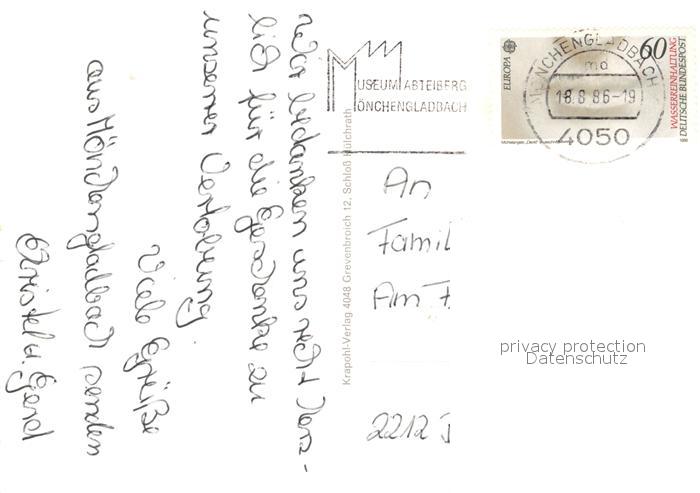 Wir bedanken uns recht herz-
lich für die Geschenke zu
unserer Verlobung.
Viele Grüße
aus Mönchengladbach senden
Christel u. Gerd
Krapohl-Verlag 4048 Grevenbroich 12, Schloß Hülchrath
MUSEUM ABTEIBERG
MÖNCHENGLADBACH
EUROPA
60
WASSERREINHALTUNG
DEUTSCHE BUNDESPOST
1986
MÖNCHENGLADBACH
md
18.8.86-19
4050
An
Famil
Am
2212
privacy protection
Datenschutz